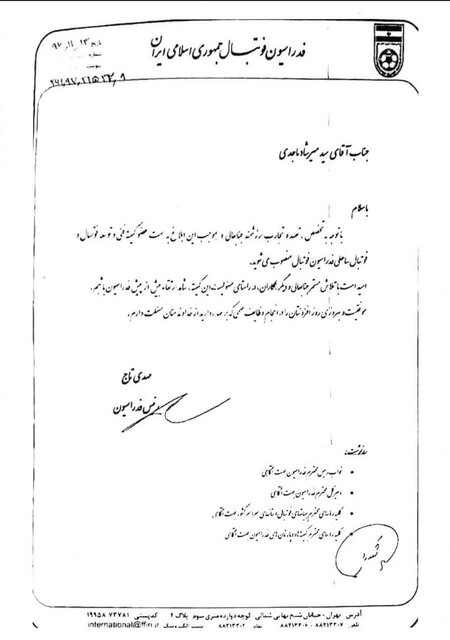 فدراسیون فوتبال جمهوری اسلامی ایران
تاریخ
شماره
جناب آقای سید میرشاد ماجدی
باسلام
باتوجه به تخصص ، تعهد و تجارب ارزشمند جنابعالی و بموجب این ابلاغ به سمت عضو کمیته فنی و توسعه فوتسال و
فوتبال ساحلی فدراسیون فوتبال منصوب می شوید.
امید است با تلاش مستمر جنابعالی و دیگر همکاران، در راستای مسئولیت این کمیته، شاهد ارتقاء بیش از پیش فدراسیون باشیم.
موفقیت و بهروزی روز افزونتان را در انجام وظایف مهمی که بر عهده دارید از خداوند منان مسئلت دارم.
مهدی تاج
رئیس فدراسیون
رونوشت:
نواب رئیس محترم فدراسیون جهت آگاهی
دبیرکل محترم فدراسیون جهت آگاهی
کلیه روسای محترم هیاتهای فوتبال استانهای سراسر کشور جهت آگاهی
کلیه روسای محترم کمیته ها و دپارتمان های فدراسیون جهت آگاهی
آدرس تهران - خیابان شیخ بهایی شمالی کوچه دوازده متری سوم پلاک ۴ کدپستی ۱۹۹۵۸۷۳۷۸۱